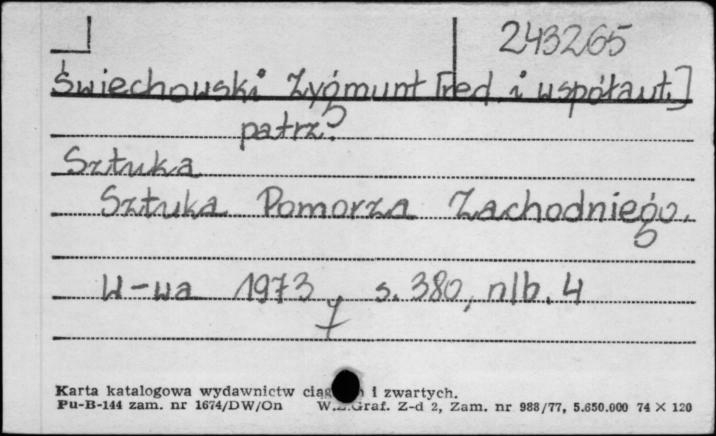 243265
Świechowski Zygmunt [red. i współaut.]
patrz:
Sztuka
Sztuka Pomorza Zachodniego.
W-wa 1973, s. 380, nlb. 4
Karta katalogowa wydawnictw i zwartych.
Pu-B-144 zam. nr 1674/DW/On W.Z.Graf. Z-d 2, Zam. nr 988/77, 5.650.000 74 × 120